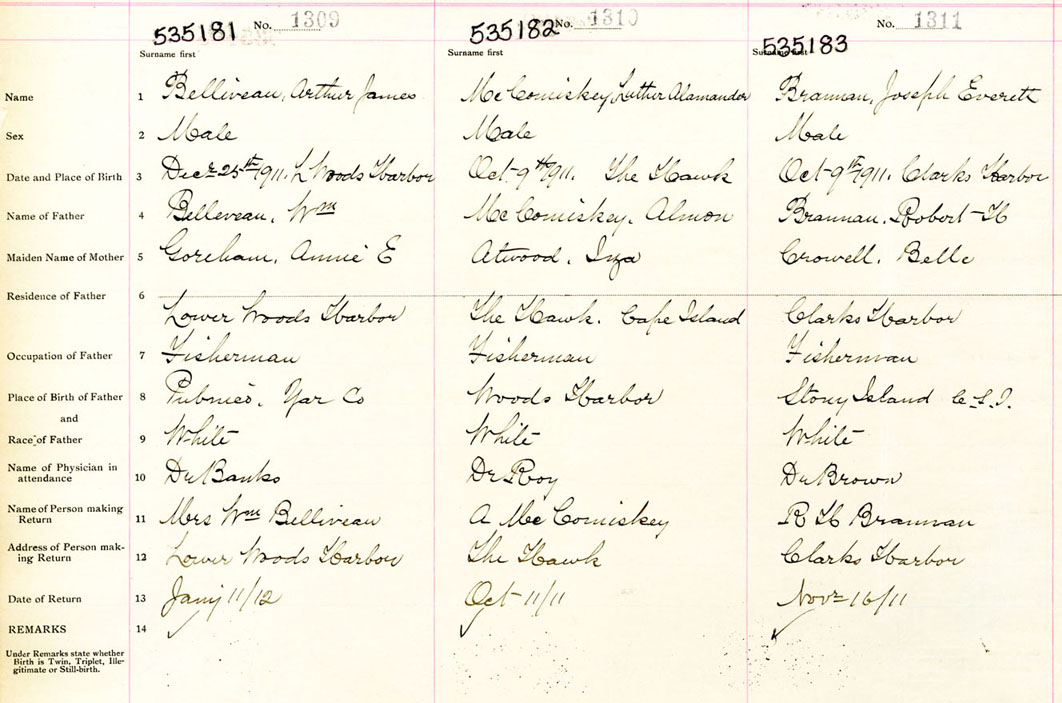 535181 No. 1309 535182 No. 1310 535183 No. 1311
Surname first Surname first Surname first
Name 1 Belliveau, Arthur James McComiskey, Luther Alamander Brannan, Joseph Everett
Sex 2 Male Male Male
Date and Place of Birth 3 Decr 25th 1911. L Woods Harbor Oct-9th 1911. The Hawk Oct-9th 1911. Clarks Harbor
Name of Father 4 Belleveau, Wm McComiskey, Almon Brannan, Robert H
Maiden Name of Mother 5 Goreham, Annie E Atwood, Inza Crowell, Belle
Residence of Father 6 Lower Woods Harbor The Hawk. Cape Island Clarks Harbor
Occupation of Father 7 Fisherman Fisherman Fisherman
Place of Birth of Father 8 Pubnico, Yar Co Woods Harbor Stony Island C.S.I.
and
Race of Father 9 White White White
Name of Physician in
attendance 10 Dr Banks Dr Roy Dr Brown
Name of Person making
Return 11 Mrs Wm Belliveau A McComiskey R H Brannan
Address of Person mak-
ing Return 12 Lower Woods Harbor The Hawk Clarks Harbor
Date of Return 13 Jany 11/12 Oct-11/11 Novr 16/11
REMARKS 14
Under Remarks state whether
Birth is Twin, Triplet, Ille-
gitimate or Still-birth.